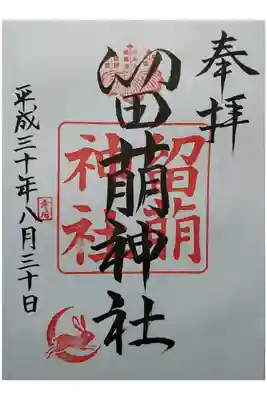 奉拝
留萌神社
留萌
神社
平成三十年八月三十日